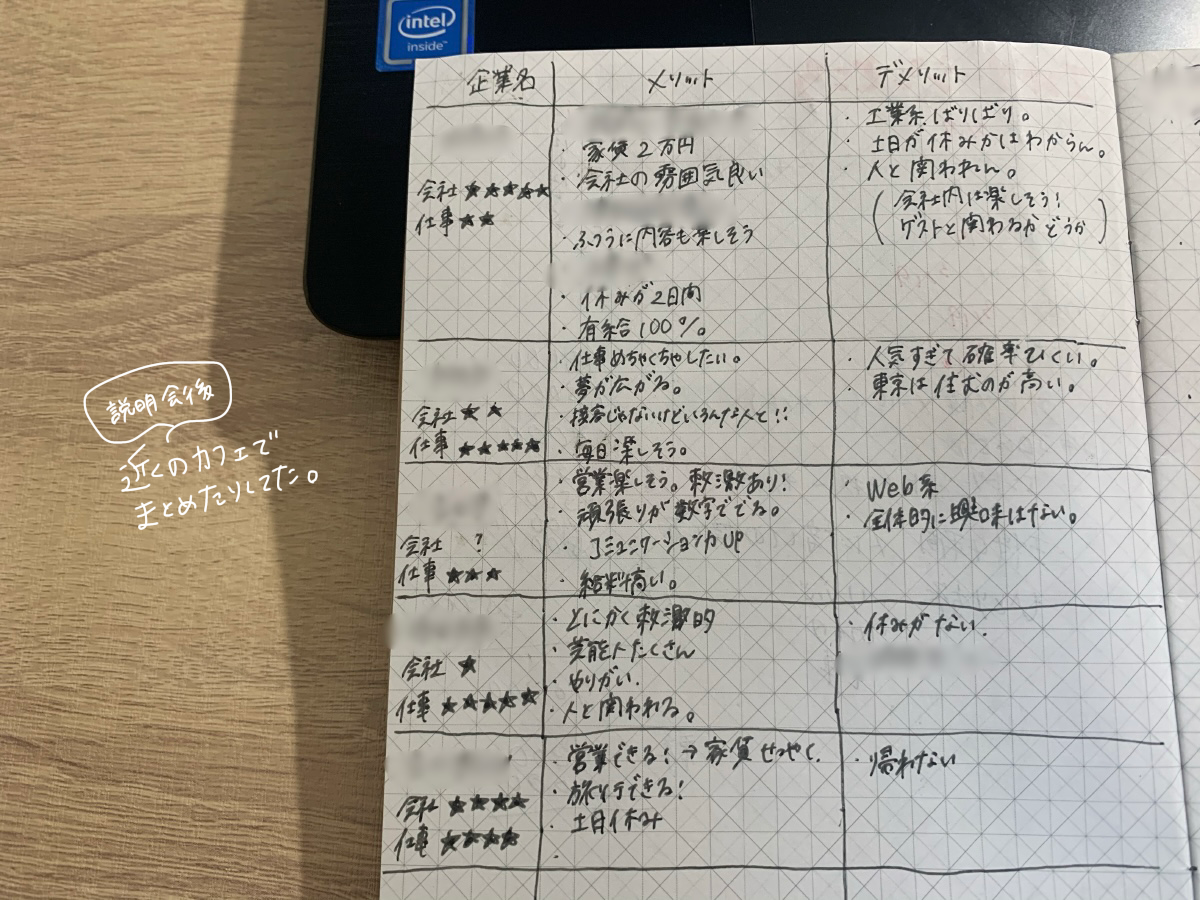 intel
inside™
企業名 メリット デメリット
会社 ★★★★★
仕事 ★★
・家賃2万円
・会社の雰囲気良い
・ふつうに内容も楽しそう
・休みが2日間
・有給100%。
・工業系ばりばり。
・土日が休みかはわからん。
・人と関われん。
(会社内は楽しそう!
ゲストと関わるかどうか)
会社 ★★
仕事 ★★★★★
・仕事めちゃくちゃしたい。
・夢が広がる。
・接客じゃないけどいろんな人と!!
・毎日楽しそう。
・人気すぎて確率ひくい。
・東京は住むのが高い。
会社 ?
仕事 ★★★
・営業楽しそう。刺激あり!
・頑張りが数字ででる。
・コミュニケーション力UP
・給料高い。
・Web系
・全体的に興味はない。
会社 ★
仕事 ★★★★★
・とにかく刺激的
・芸能人たくさん
・やりがい.
・人と関われる。
・休みがない.
会社 ★★★★
仕事 ★★★★
・営業できる!→家賃せつやく.
・旅行できる!
・土日休み
・帰れない
説明会後
近くのカフェで
まとめたりしてた。